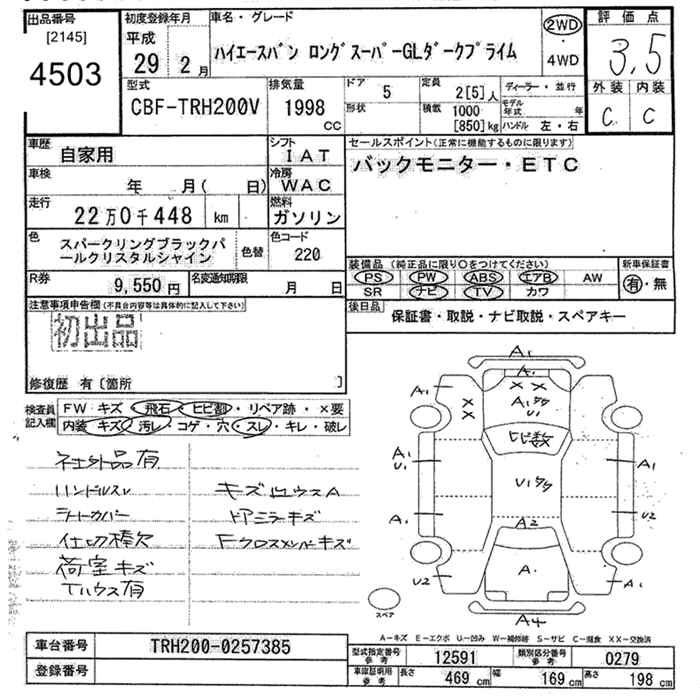 出品番号
[2145]
4503
初度登録年月
平成
29年 2月
車名・グレード
ハイエースバン ロングスーパーGLダークプライム
2WD
・
4WD
評価点
3.5
外装 内装
C C
型式
CBF-TRH200V
排気量
1998
CC
ドア
5
形状
定員
2[5]人
積載
1000
[850]kg
ディーラー・並行
モデル年式 年
ハンドル 左・右
車歴
自家用
シフト
IAT
車検
年 月( 日)
冷房
WAC
走行
22万0千448 km
燃料
ガソリン
色
スパークリングブラックパ
ールクリスタルシャイン
色替
色コード
220
R券
9,550円
名変通知期限
月 日
セールスポイント(正常に機能するものに限ります)
バックモニター・ETC
装備品 (純正品に限り○をつけてください)
PS PW ABS エアB AW
SR ナビ TV カワ
新車保証書
有・無
後日品
保証書・取説・ナビ取説・スペアキー
注意事項申告欄(不具合内容等は具体的に記入して下さい)
初出品
修復歴 有〔箇所 〕
検査員
記入欄
FW キズ・飛石・ヒビ割・リペア跡・×要
内装 キズ・汚レ・コゲ・穴・スレ・キレ・破レ
社外品有
ハンドルスレ
シートカバー
仕切棒欠
荷室キズ
Tハウス有
キズセウスA
ドアミラーキズ
Fクロスメンバーキズ
A1
A1
A1
× ×
×
×
A1タタ
U1
ヒビ数
A1
U1
U1タタ
A1
A1
U2
A2
U2
A1
A4
スペア
A-キズ E-エクボ U-凹み W-補修跡 S-サビ C-腐食 XX-交換済
車台番号
TRH200-0257385
登録番号
型式指定番号
参考
12591
類別区分番号
参考
0279
車庫証明用
参考
長さ
469 cm
幅
169 cm
高さ
198 cm